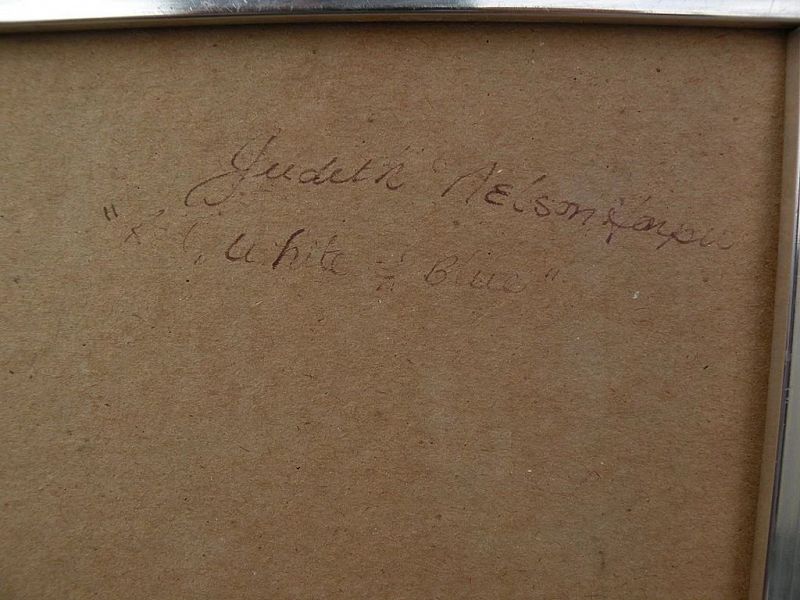 Judith Nelson
"Red, White & Blue"